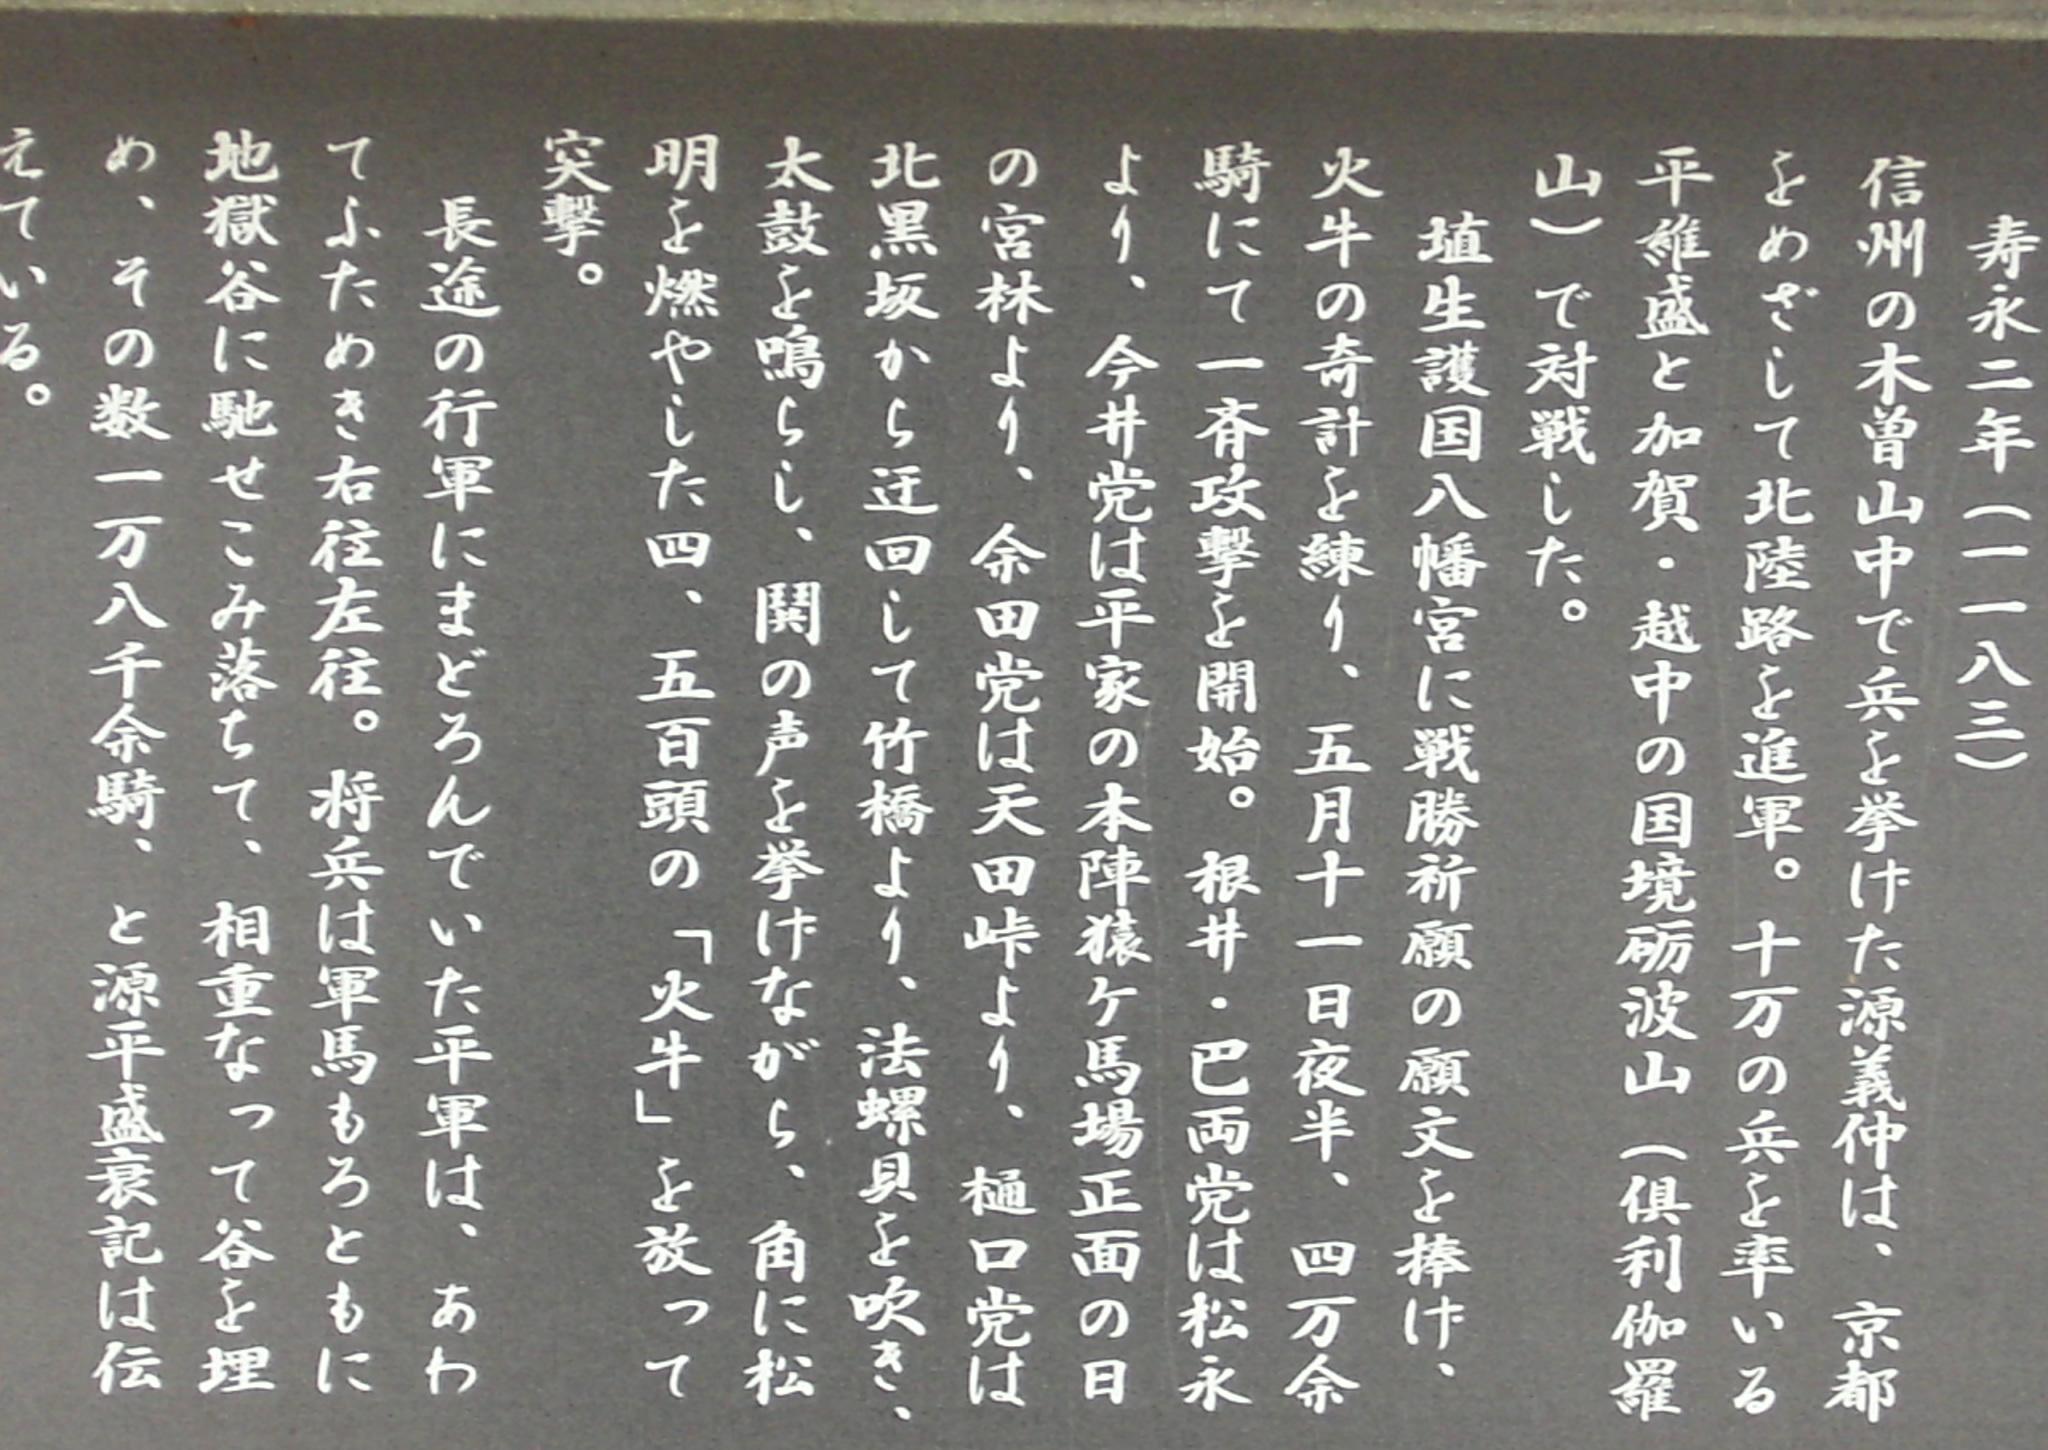 寿永二年（一一八三）
信州の木曽山中で兵を挙げた源義仲は、京都
をめざして北陸路を進軍。十万の兵を率いる
平維盛と加賀・越中の国境砺波山（倶利伽羅
山）で対戦した。
埴生護国八幡宮に戦勝祈願の願文を捧げ、
火牛の奇計を練り、五月十一日夜半、四万余
騎にて一斉攻撃を開始。根井・巴両党は松永
より、今井党は平家の本陣猿ケ馬場正面の日
の宮林より、余田党は天田峠より、樋口党は
北黒坂から迂回して竹橋より、法螺貝を吹き、
太鼓を鳴らし、鬨の声を挙げながら、角に松
明を燃やした四、五百頭の「火牛」を放って
突撃。
長途の行軍にまどろんでいた平軍は、あわ
てふためき右往左往。将兵は軍馬もろともに
地獄谷に馳せこみ落ちて、相重なって谷を埋
め、その数一万八千余騎、と源平盛衰記は伝
えている。